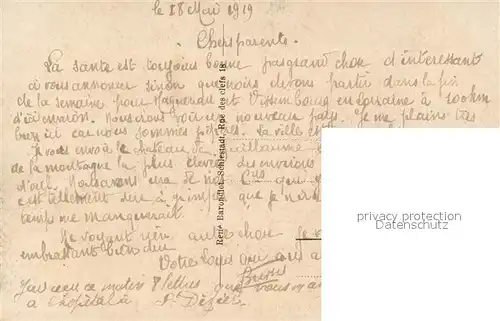 le 18 Mai 1919
Chers parents.
La santé est toujours bonne pas grand chose d'interessant
à vous annoncer sinon que nous devons partir dans la fin
de la semaine pour Haguenau et Vissembourg en Loraine à 100 km
d'ici environ. Nous irons voir un nouveau pays. Je me plains très
bien ici car nous sommes La ville
Je vous envoie le chateau de Guillaume
de la montagne la plus elevée des environs
d'ici. une de nos Cies qui
est tellement dur à grimper que je n'
temps me manquerait.
Ne voyant rien autre chose Je
embrassant bien dur
Votre Louis qui
J'ai reçu ce matin 8 lettres que vous
à l'hopital
René Barondiot, Schlestadt, Rue des clefs 18.
privacy protection
Datenschutz